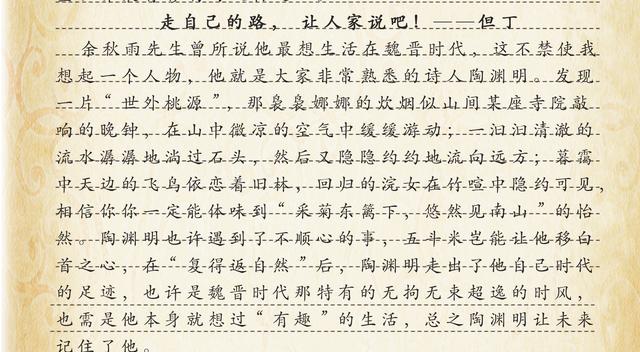 走自己的路，让人家说吧！——但丁
余秋雨先生曾所说他最想生活在魏晋时代，这不禁使我
想起一个人物，他就是大家非常熟悉的诗人陶渊明。发现
一片“世外桃源”，那袅袅娜娜的炊烟似山间某座寺院敲
响的晚钟，在山中微凉的空气中缓缓游动；一汩汩清澈的
流水潺潺地淌过石头，然后又隐隐约约地流向远方；暮霭
中天边的飞鸟依恋着旧林，回归的浣女在竹喧中隐约可见，
相信你你一定能体味到“采菊东篱下，悠然见南山”的怡
然。陶渊明也许遇到了不顺心的事，五斗米岂能让他移白
首之心，在“复得返自然”后，陶渊明走出了他自己时代
的足迹，也许是魏晋时代那特有的无拘无束超逸的时风，
也需是他本身就想过“有趣”的生活，总之陶渊明让未来
记住了他。